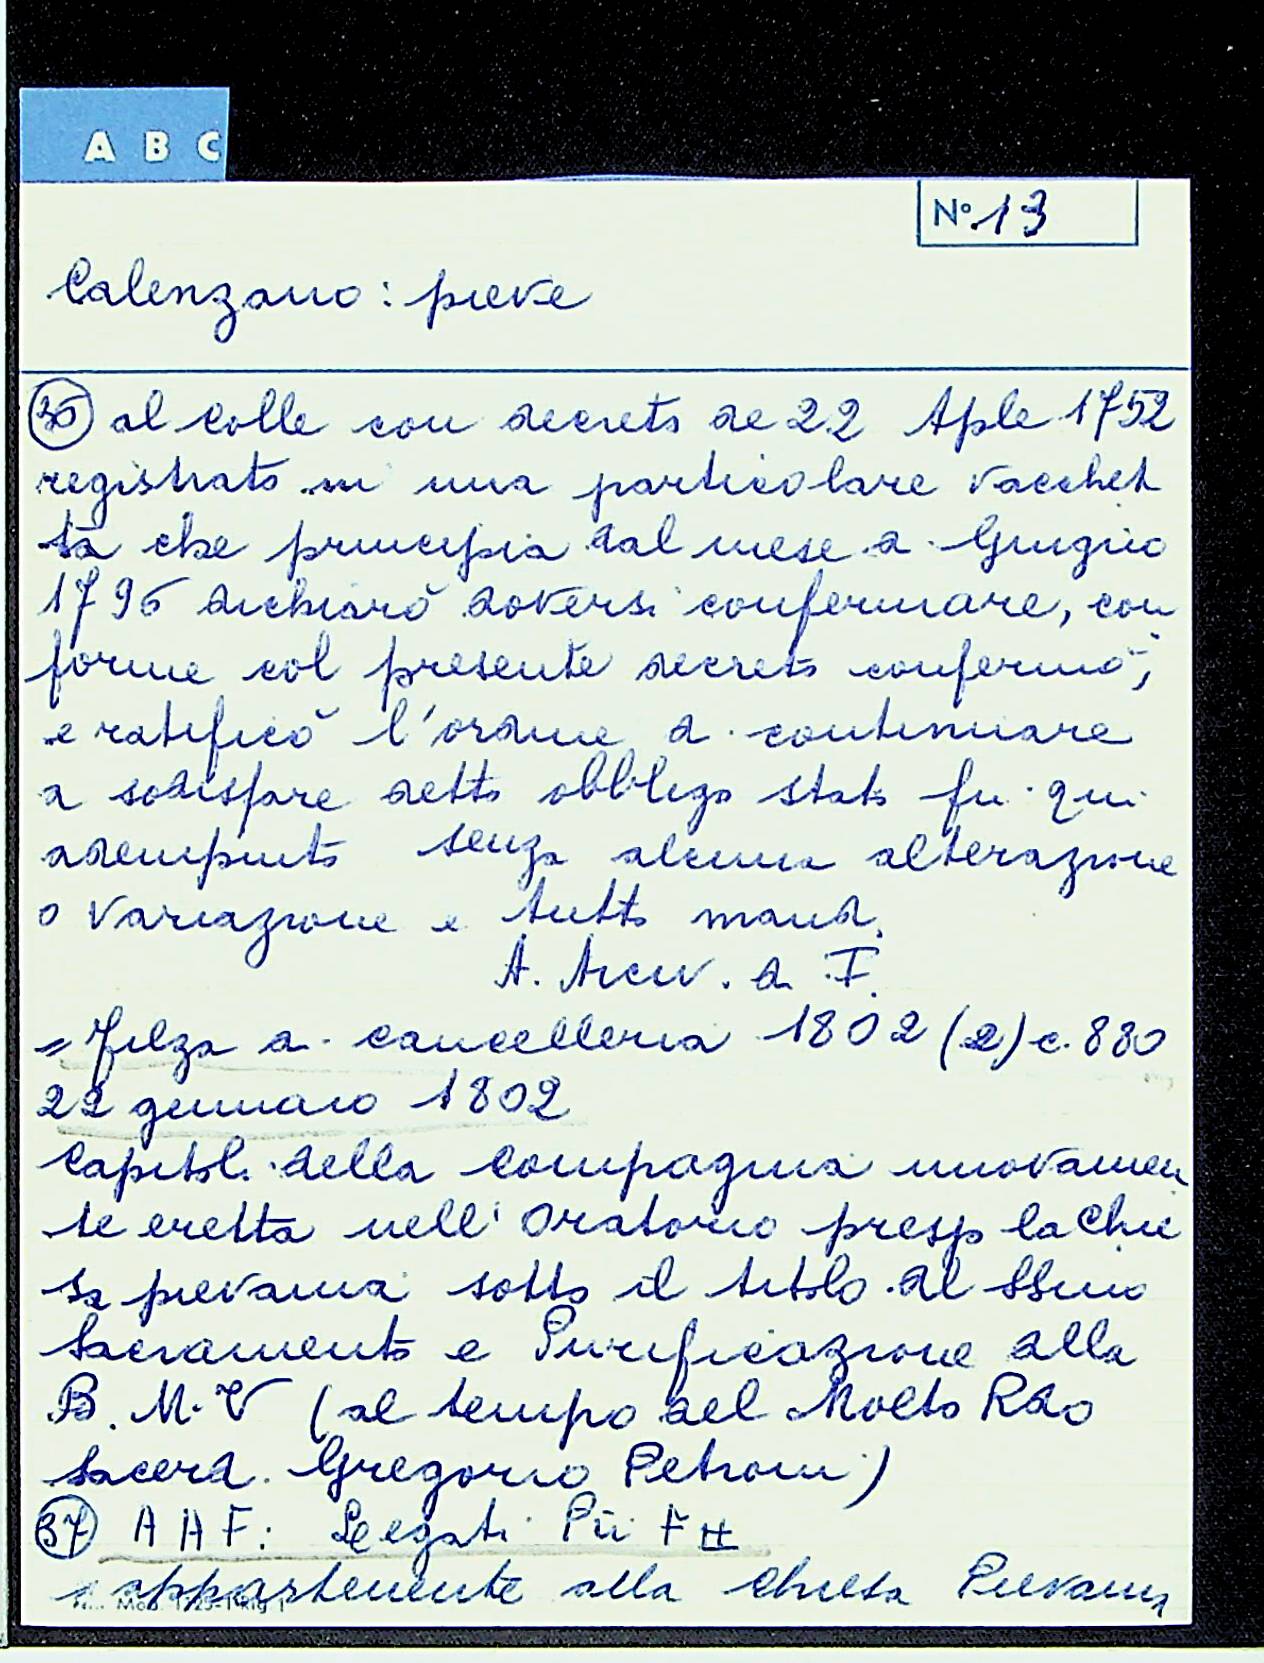 A B C
N° 13
Calenzano: pieve
36 al Colle con decreto de 22 Aple 1752
registrato in una particolare vacchet
ta che principia dal mese di Giugno
1796 dichiarò doversi confermare, con
forme col presente decreto confermò,
e ratificò l'ordine di continuare
a sodisfare detto obbligo stato fin qui
adempiuto senza alcuna alterazione
o variazione e tutto mand.
A. Arciv. di F.
= Filza di cancelleria 1802 (2) c. 880
22 gennaio 1802
Capitoli della Compagnia nuovamen
te eretta nell'Oratorio presso la Chie
sa pievania sotto il titolo del SSmo
Sacramento e Purificazione della
B. M. V (al tempo del Molto Rdo
sacerd. Gregorio Petroni)
37 A A F: Legati Pii F II
appartenente alla Chiesa Pievania